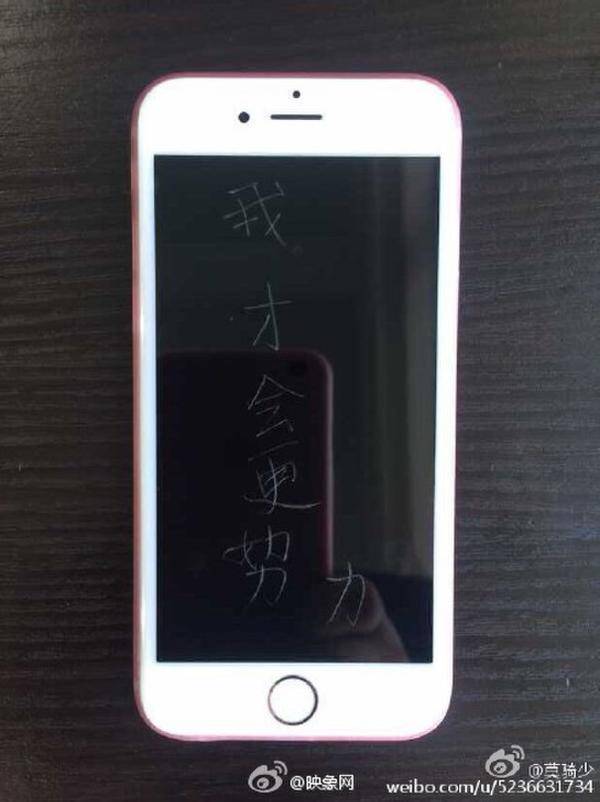 我才会更努力
@映象网
@莫琦少
weibo.com/u/5236631734